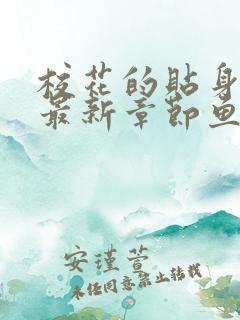 校花的贴身
最新章节鱼
安瑾萱
未经同意禁止转载